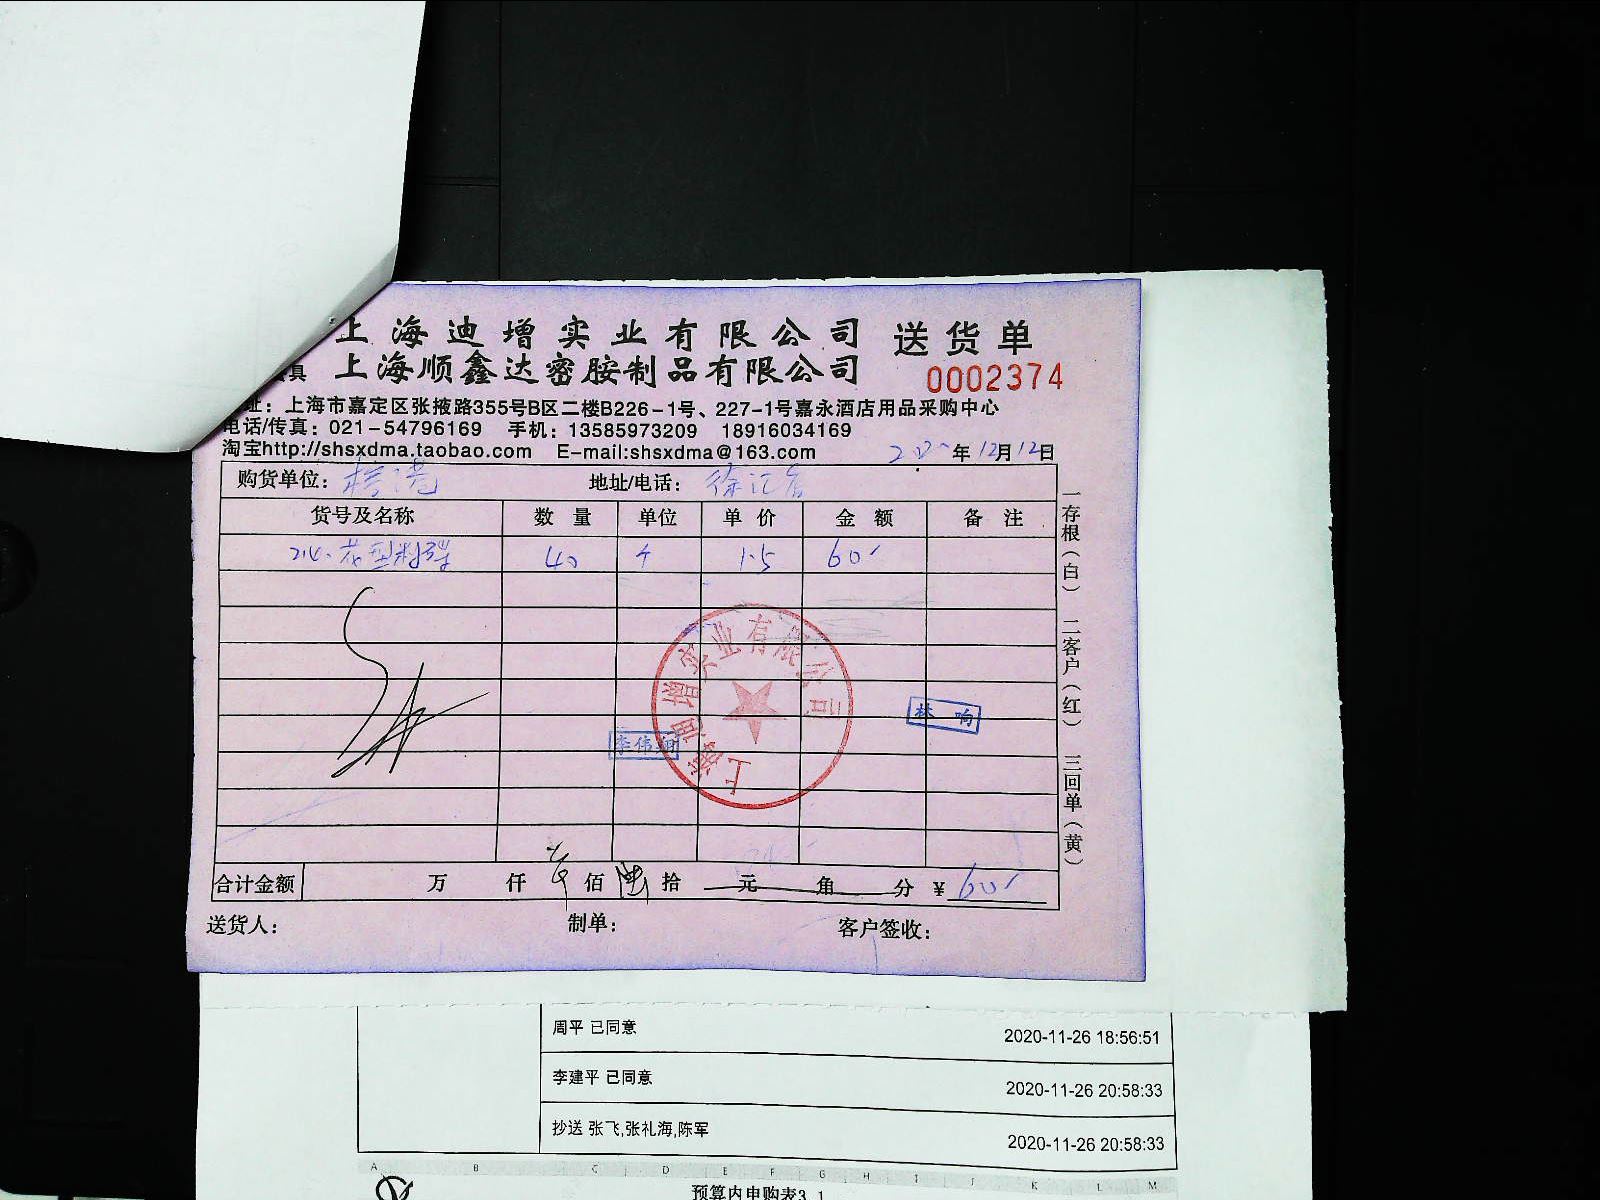 上海迪增实业有限公司 送货单
具 上海顺鑫达密胺制品有限公司 0002374
址：上海市嘉定区张掖路355号B区二楼B226-1号、227-1号嘉永酒店用品采购中心
电话/传真：021-54796169 手机：13585973209 18916034169
淘宝http://shsxdma.taobao.com E-mail:shsxdma@163.com 年12月12日
购货单位： 地址/电话：徐汇店
货号及名称 数量 单位 单价 金额 备注
40 个 1.5 60
上海迪增实业有限公司
林 响
李伟
合计金额 万 仟 佰 拾 元 角 分 ¥60
送货人： 制单： 客户签收：
一存根（白） 二客户（红） 三回单（黄）
周平 已同意 2020-11-26 18:56:51
李建平 已同意 2020-11-26 20:58:33
抄送 张飞,张礼海,陈军 2020-11-26 20:58:33
A B C D E F G H I J K L M
预算内申购表3_1